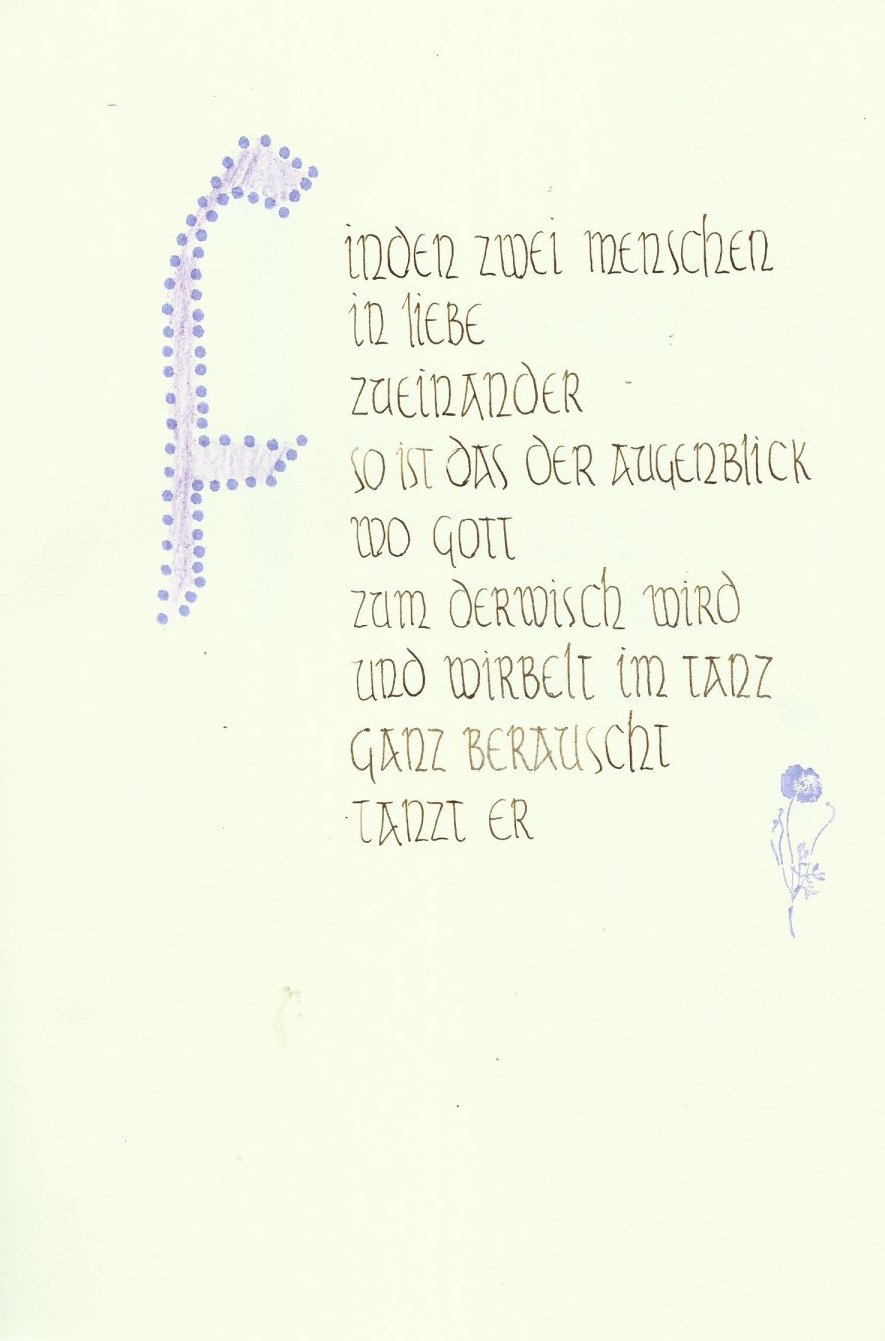 Finden zwei Menschen
in Liebe
zueinander
so ist das der Augenblick
wo Gott
zum Derwisch wird
und wirbelt im Tanz
ganz berauscht
tanzt er